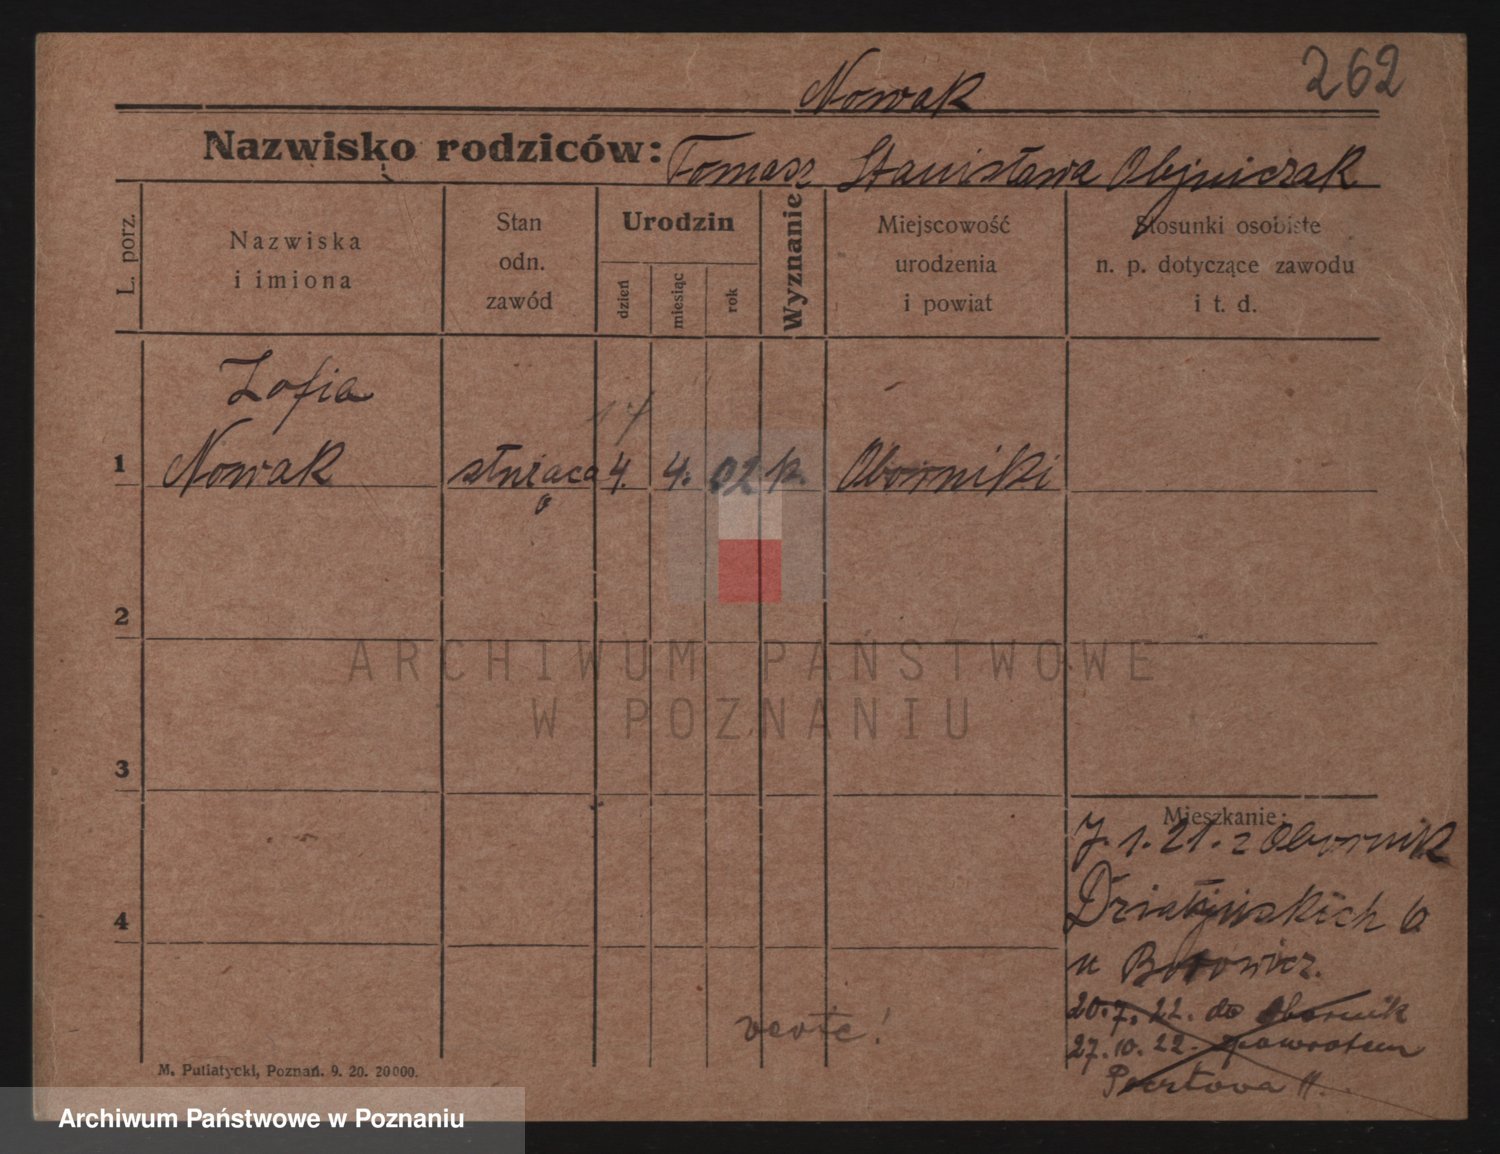 262
Nowak
Nazwisko rodziców: Tomasz Stanisława Objniczak
L. porz.
Nazwiska
i imiona
Stan
odn.
zawód
Urodzin
dzień
miesiąc
rok
Wyznanie
Miejscowość
urodzenia
i powiat
Stosunki osobiste
n. p. dotyczące zawodu
i t. d.
Zofia
17
1 Nowak służąca 4. 4. 02 k. Oborniki
2
ARCHIWUM PAŃSTWOWE
W POZNANIU
3
Mieszkanie:
7. 1. 21. z Obornik
4
Działyńskich 6
u Borowicz.
20. 7. 22. do Obornik
27. 10. 22. z powrotem
Pocztowa 11.
verte!
M. Putiatycki, Poznań. 9. 20. 20000.
Archiwum Państwowe w Poznaniu